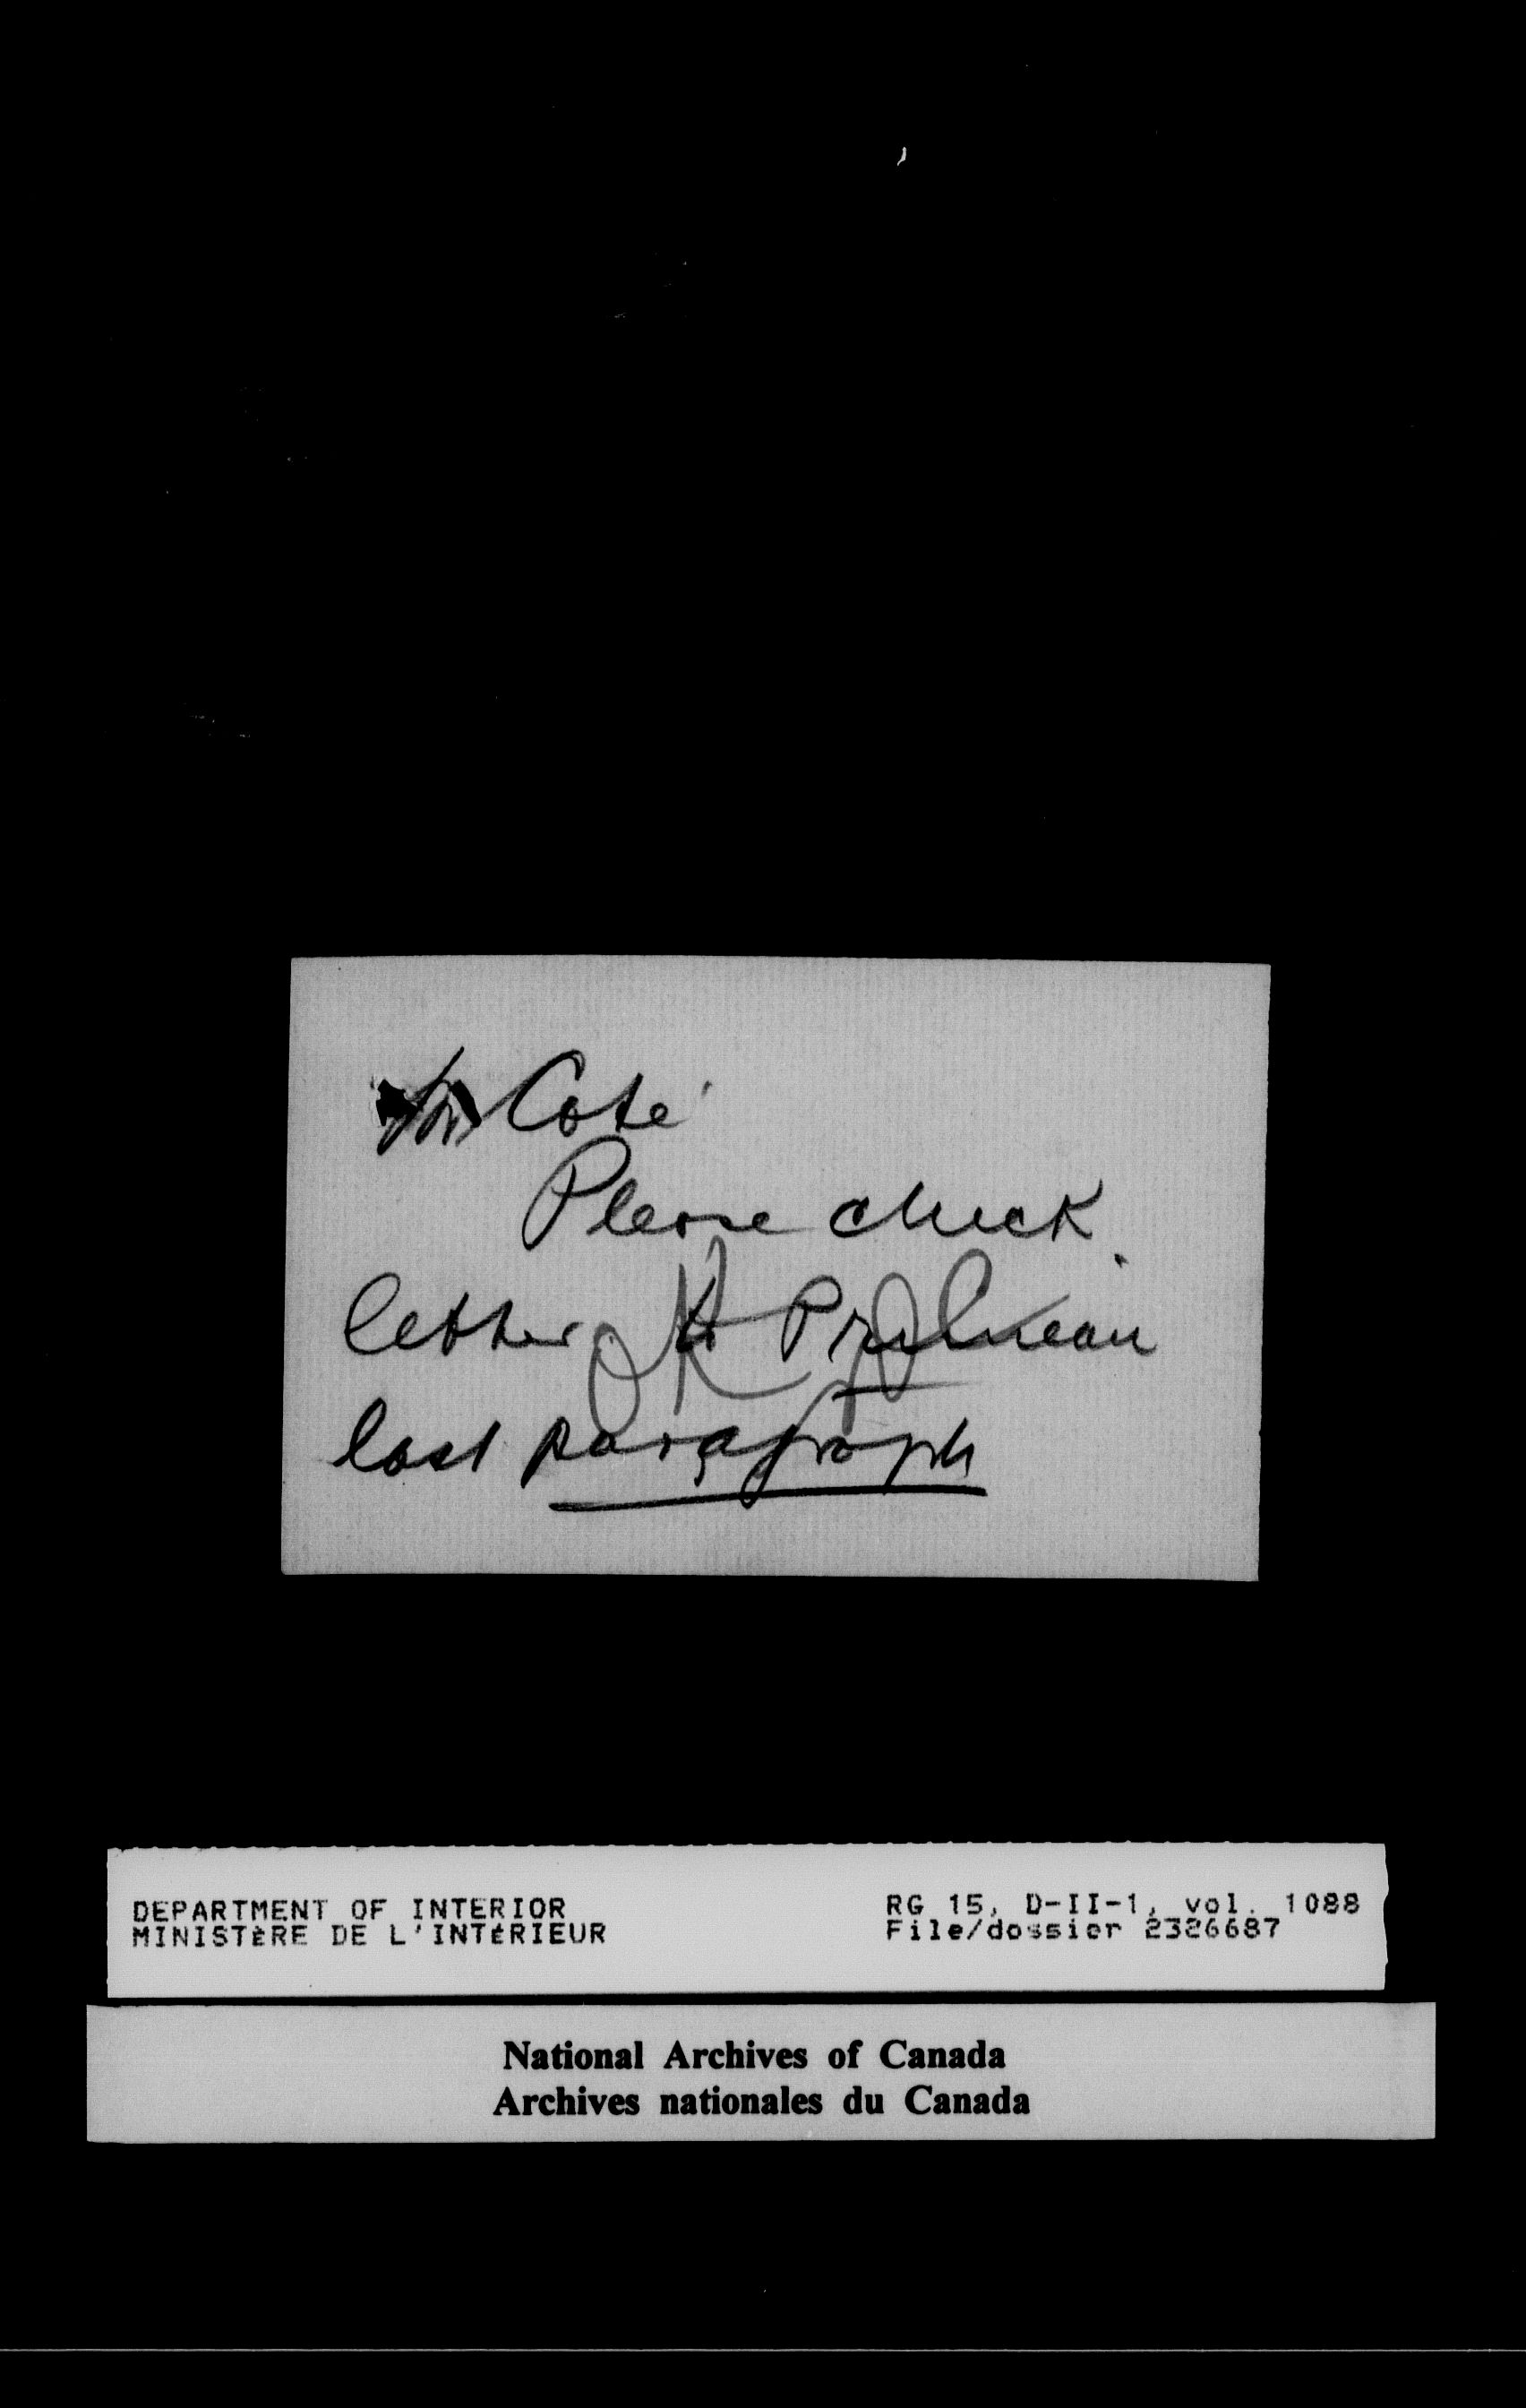 Mr Coté
Please check
letter to Prudhomme
last paragraph
OK
DEPARTMENT OF INTERIOR
MINISTÈRE DE L'INTÉRIEUR
RG 15, D-II-1, vol. 1088
File/dossier 2326687
National Archives of Canada
Archives nationales du Canada